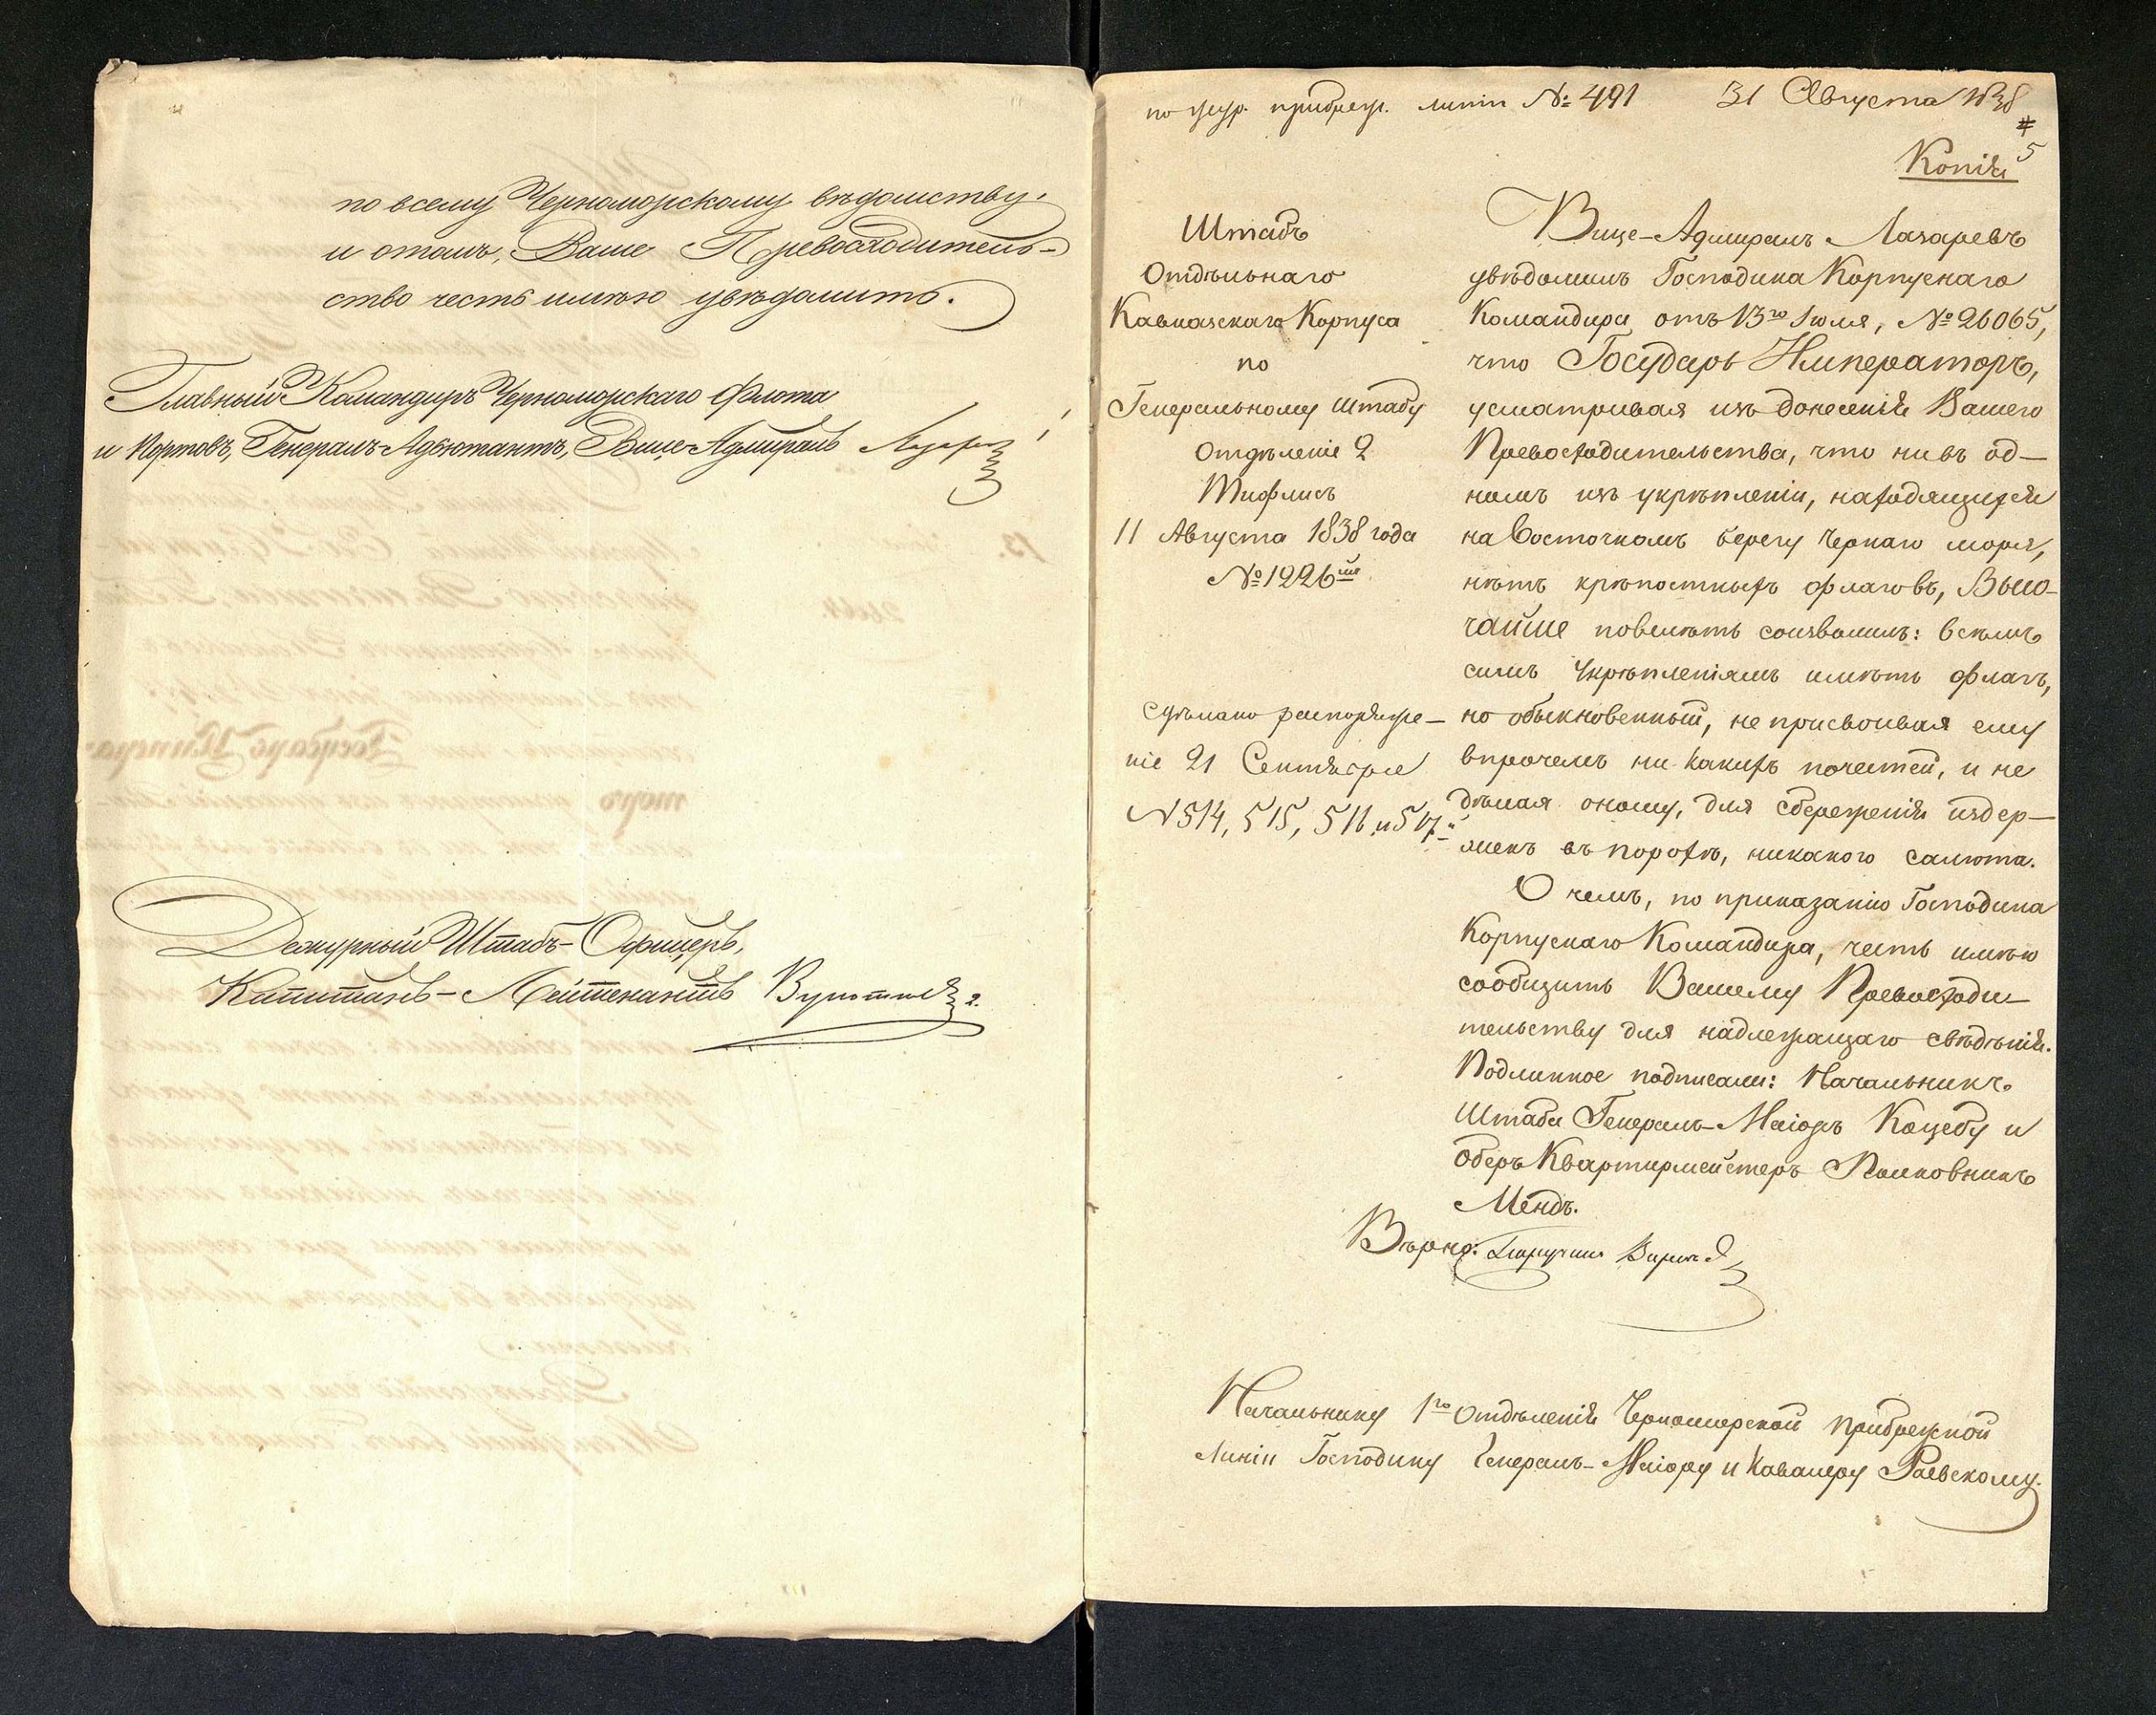 по всему Черноморскому вѣдомству.
и отомъ, Ваше Превосходитель-
ство честь имѣю увѣдомить.
Главный Командиръ Черноморскаго Флота
и Портовъ, Генералъ-Адъютантъ, Вице-Адмиралъ Лазаревъ
Дежурный Штабъ-Офицеръ,
Капитанъ-Лейтенантъ
по журн. прибреж. линіи № 491 31 Августа 1838
5
Копія
Штабъ
Отдѣльнаго
Кавказскаго Корпуса
по
Генеральному Штабу
Отдѣленіе 2
Тифлисъ
11 Августа 1838 года
№ 1226й
Сдѣлано распоряже-
ніе 21 Сентября
N 514, 515, 516 и 517й
Вице-Адмиралъ Лазаревъ
увѣдомилъ Господина Корпуснаго
Командира отъ 13го Іюля, № 26065,
что Государь Императоръ,
усматривая изъ донесенія Вашего
Превосходительства, что ни въ од-
номъ изъ укрѣпленіи, находящихся
на Восточномъ берегу Чернаго моря,
нѣтъ крѣпостныхъ флаговъ, Высо-
чайше повелѣть соизволилъ: всѣмъ
симъ Укрѣпленіямъ имѣть флагъ,
но обыкновенный, не присвоивая ему
впрочемъ ни какихъ почестей, и не
дѣлая оному, для сбереженія издер-
жекъ въ порохѣ, никакого салюта.
О чемъ, по приказанію Господина
Корпуснаго Командира, честь имѣю
сообщить Вашему Превосходи-
тельству для надлежащаго свѣдѣнія.
Подлинное подписали: Начальникъ
Штаба Генералъ-Маіоръ Коцебу и
Оберъ Квартирмейстеръ Полковникъ
Мендъ.
Вѣрно: Поручикъ
Начальнику 1го Отдѣленія Черноморской прибрежной
Линіи Господину Генералъ-Маіору и Кавалеру Раевскому.